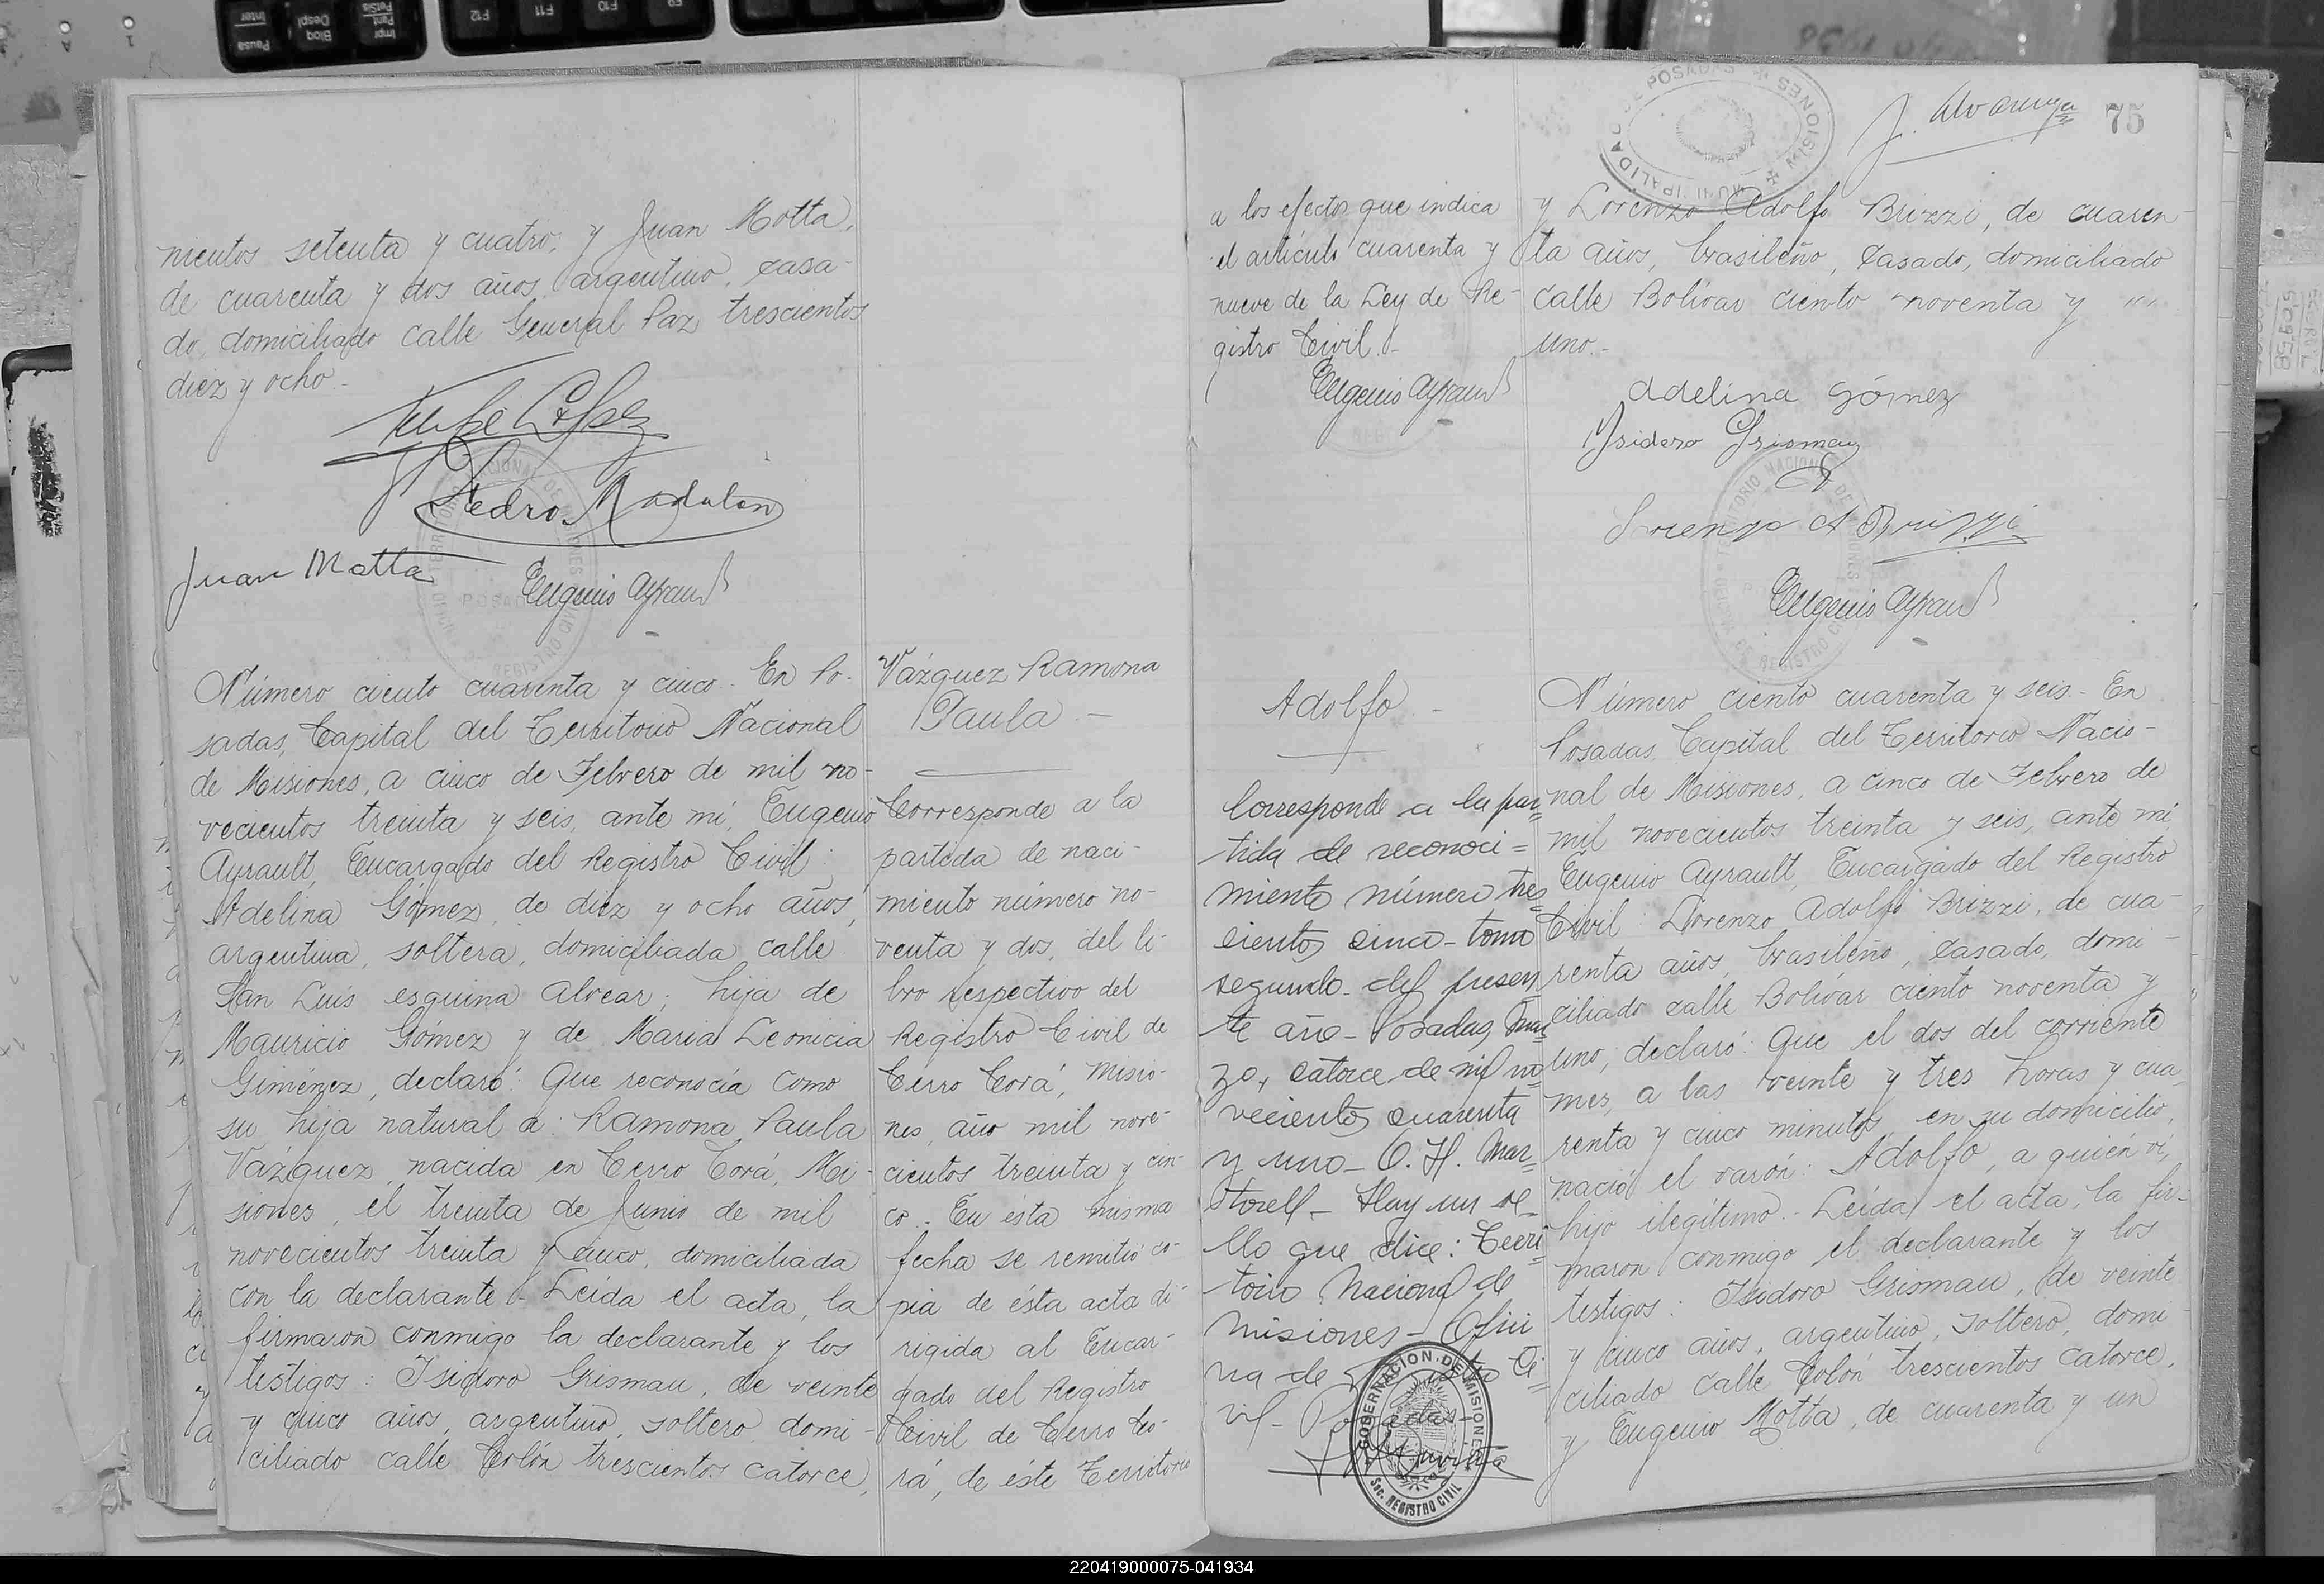 Inter
Pausa
Despl
Bloq
PetSis
Pant
Impr
F12
F11
F10
F9
nientos setenta y cuatro, y Juan Motta,
de cuarenta y dos años, argentino, casa-
do, domiciliado calle General Paz trescientos
diez y ocho.-
Juan Motta
Eugenio Ayrault
Número ciento cuarenta y cinco.- En Po-
sadas, Capital del Territorio Nacional
de Misiones, a cinco de Febrero de mil no-
vecientos treinta y seis, ante mí, Eugenio
Ayrault, Encargado del Registro Civil:
Adelina Gómez, de diez y ocho años,
argentina, soltera, domiciliada calle
San Luis esquina Alvear; hija de
Mauricio Gómez y de Maria Leonicia
Giménez, declaró: Que reconocía como
su hija natural a: Ramona Paula
Vázquez, nacida en Cerro Corá, Mi-
siones, el treinta de Junio de mil
novecientos treinta y cinco, domiciliada
con la declarante.- Leída el acta, la
firmaron conmigo la declarante y los
testigos: Isidoro Grismau, de veinte
y cinco años, argentino, soltero, domi-
ciliado calle Colón trescientos catorce,
Vázquez Ramona
Paula.-
Corresponde a la
partida de naci-
miento número no-
venta y dos, del li-
bro respectivo del
Registro Civil de
Cerro Corá, Misio-
nes, año mil nove-
cientos treinta y cin-
co.- En ésta misma
fecha se remitió co-
pia de ésta acta di-
rigida al Encar-
gado del Registro
Civil de Cerro Co-
rá, de éste Territorio
a los efectos que indica
el artículo cuarenta y
nueve de la Ley de Re-
gistro Civil.-
Eugenio Ayrault
MUNICIPALIDAD DE POSADAS MISIONES
J. Alvarenga
75
y Lorenzo Adolfo Brizzi, de cuaren-
ta años, brasileño, casado, domiciliado
calle Bolívar ciento noventa y "
uno.-
Adelina Gómez
Isidoro Grismau
Lorenzo A Brizzi
Eugenio Ayrault
Adolfo.-
Corresponde a la par=
tida de reconoci=
miento número tres=
cientos cinco- tomo
segundo- del presen
te año- Posadas, Mar=
zo, catorce de mil no=
vecientos cuarenta
y uno- O. H. Mar=
torell- Hay un se-
llo que dice: Terri=
torio Nacional de
Misiones- Ofici
na de Registro Ci=
vil- Posadas-
GOBERNACION DE MISIONES
Sec. REGISTRO CIVIL
Número ciento cuarenta y seis.- En
Posadas, Capital del Territorio Nacio-
nal de Misiones, a cinco de Febrero de
mil novecientos treinta y seis, ante mí
Eugenio Ayrault, Encargado del Registro
Civil: Lorenzo Adolfo Brizzi, de cua-
renta años, brasileño, casado, domi-
ciliado calle Bolívar ciento noventa y
uno, declaró: Que el dos del corriente
mes, a las veinte y tres horas y cua-
renta y cinco minutos, en su domicilio,
nació el varón: Adolfo, a quién ví,
hijo ilegítimo.- Leída el acta, la fir-
maron conmigo el declarante y los
testigos: Isidoro Grismau, de veinte
y cinco años, argentino, soltero, domi-
ciliado calle Colón trescientos catorce,
y Eugenio Motta, de cuarenta y un
220419000075-041934